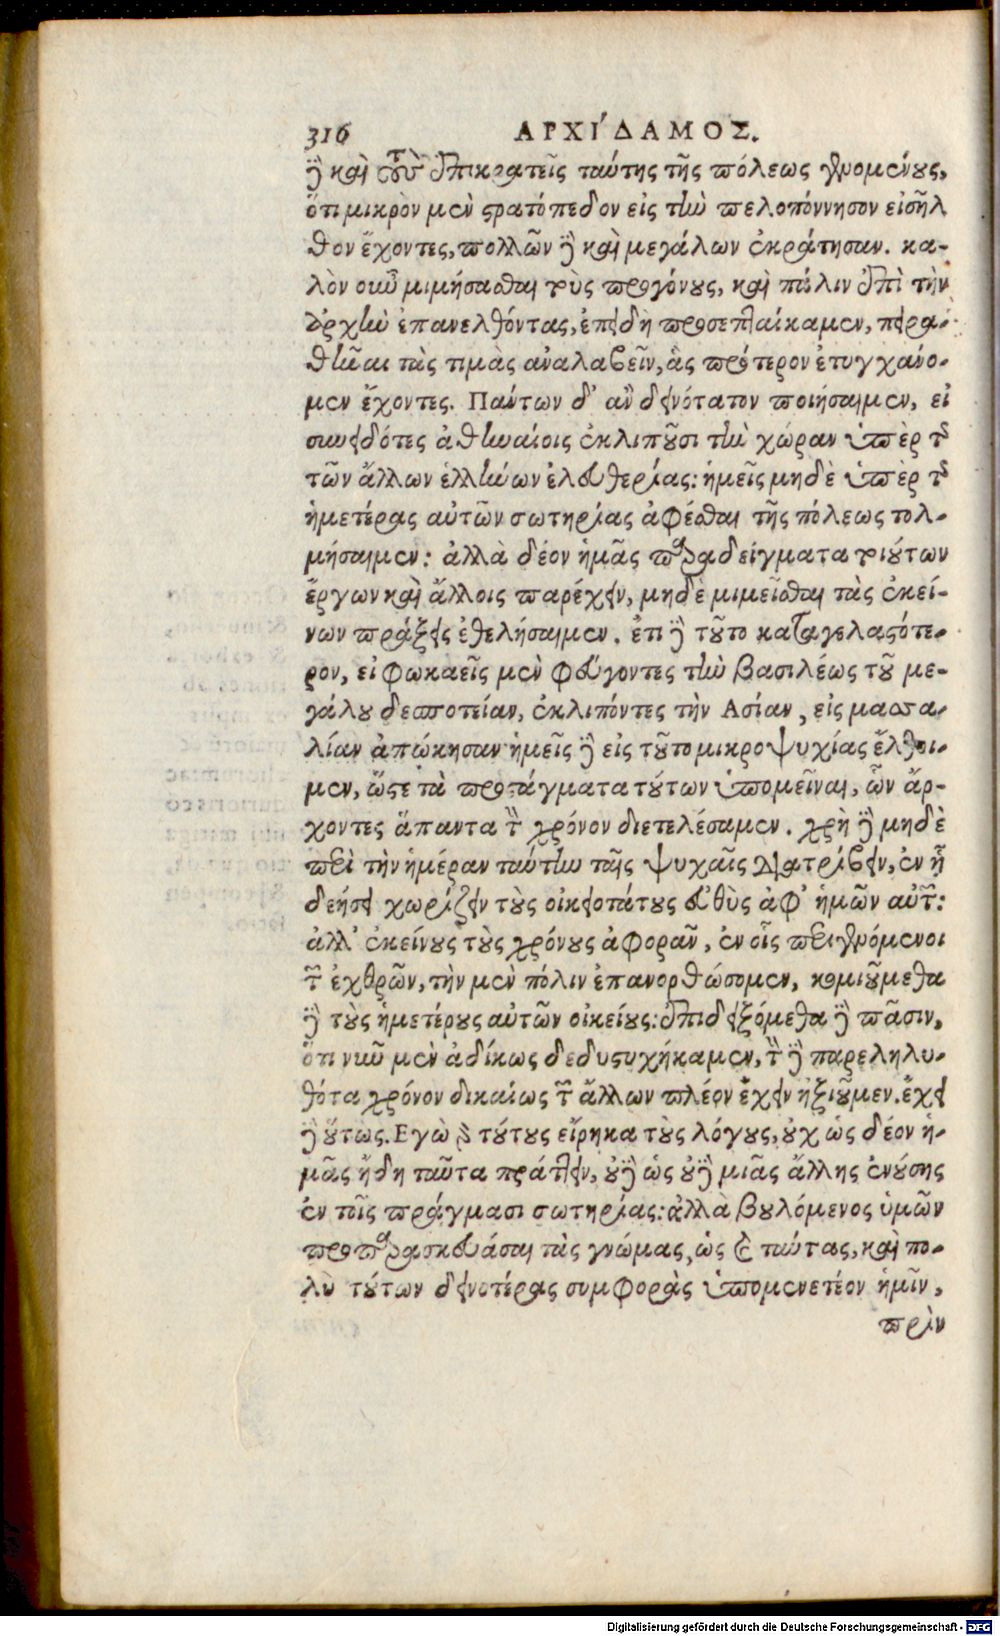 316 ΑΡΧΙ´ΔΑΜΟΣ.
δὲ καὶ τοὺς ἐπικρατεῖς ταύτης τῆς πόλεως γενομένους,
ὅτι μικρὸν μὲν στρατόπεδον εἰς τὴν πελοπόννησον εἰσῆλ
θον ἔχοντες, πολλῶν δὲ καὶ μεγάλων ἐκράτησαν. κα-
λὸν οὖν μιμήσασθαι τοὺς προγόνους, καὶ πάλιν ἐπὶ τὴν
ἀρχὴν ἐπανελθόντας, ἐπειδὴ προσεπταίκαμεν, πειρα-
θῆναι τὰς τιμὰς ἀναλαβεῖν, ἃς πρότερον ἐτυγχάνο-
μεν ἔχοντες. Πάντων δ' ἂν δεινότατον ποιήσαιμεν, εἰ
συνειδότες ἀθηναίοις ἐκλιποῦσι τὴν χώραν ὑπὲρ τῆς
τῶν ἄλλων ἑλλήνων ἐλευθερίας: ἡμεῖς μηδὲ ὑπὲρ τῆς
ἡμετέρας αὐτῶν σωτηρίας ἀφέσθαι τῆς πόλεως τολ-
μήσαιμεν: ἀλλὰ δέον ἡμᾶς παραδείγματα τοιούτων
ἔργων καὶ ἄλλοις παρέχειν, μηδὲ μιμεῖσθαι τὰς ἐκεί-
νων πράξεις ἐθελήσαιμεν. ἔτι δὲ τοῦτο καταγελαστότε-
ρον, εἰ φωκαεῖς μὲν φεύγοντες τὴν βασιλέως τοῦ με-
γάλου δεσποτείαν, ἐκλιπόντες τὴν Ασίαν, εἰς μασσα-
λίαν ἀπῴκησαν ἡμεῖς δὲ εἰς τοῦτο μικροψυχίας ἔλθοι-
μεν, ὥστε τὰ προστάγματα τούτων ὑπομεῖναι, ὧν ἄρ-
χοντες ἅπαντα τὸν χρόνον διετελέσαμεν. χρὴ δὲ μηδὲ
περὶ τὴν ἡμέραν ταύτην ταῖς ψυχαῖς διατρίβειν, ἐν ᾗ
δεήσει χωρίζειν τοὺς οἰκειοτάτους εὐθὺς ἀφ' ἡμῶν αὐτῶν:
ἀλλ' ἐκείνους τοὺς χρόνους ἀφορᾶν, ἐν οἷς περιγενόμενοι
τῶν ἐχθρῶν, τὴν μὲν πόλιν ἐπανορθώσομεν, κομιούμεθα
δὲ τοὺς ἡμετέρους αὐτῶν οἰκείους: ἐπιδειξόμεθα δὲ πᾶσιν,
ὅτι νῦν μὲν ἀδίκως δεδυστυχήκαμεν, τὸν δὲ παρεληλυ-
θότα χρόνον δικαίως τῶν ἄλλων πλέον ἔχειν ἠξιοῦμεν. ἔχει
δὲ οὕτως. Εγὼ δὲ τούτους εἴρηκα τοὺς λόγους, οὐχ ὡς δέον ἡ-
μᾶς ἤδη ταῦτα πράττειν, οὐδὲ ὡς οὐδὲ μιᾶς ἄλλης ἐνούσης
ἐν τοῖς πράγμασι σωτηρίας: ἀλλὰ βουλόμενος ὑμῶν
προπαρασκευάσαι τὰς γνώμας, ὡς καὶ ταύτας, καὶ πο-
λὺ τούτων δεινοτέρας συμφορὰς ὑπομενετέον ἡμῖν,
πρὶν
Digitalisierung gefördert durch die Deutsche Forschungsgemeinschaft - DFG